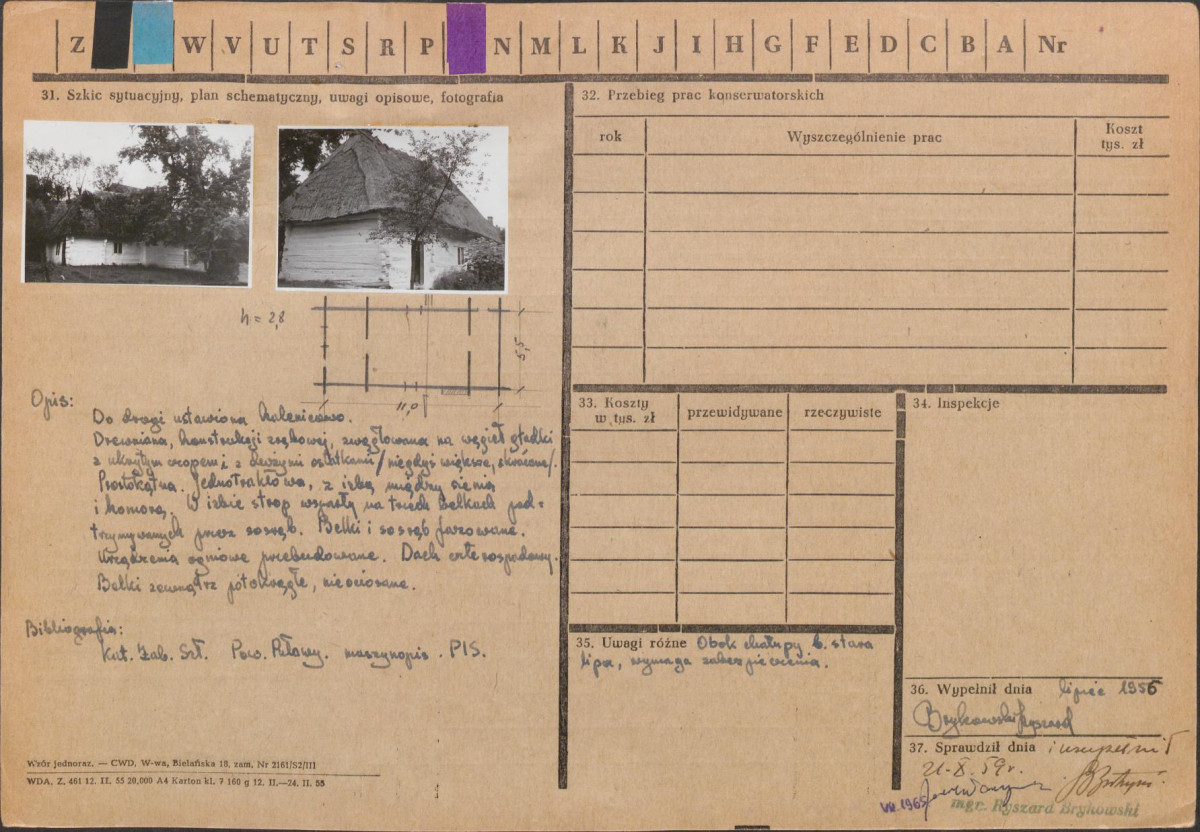 Z W V U T S R P N M L K J I H G F E D C B A Nr
31. Szkic sytuacyjny, plan schematyczny, uwagi opisowe, fotografia
h = 2,8
5,5
11,0
Opis:
Do drogi ustawiona kalenicowo.
Drewniana, konstrukcji zrębowej, zwęgłowana na węgieł gładki
z ukrytym czopem i z dłuższymi ostatkami /niegdyś większe, skrócone/.
Prostokątna. Jednotraktowa, z izbą między sienią
i komorą. W izbie strop wsparty na trzech belkach pod-
trzymywanych przez sosręb. Belki i sosręb fazowane.
Urządzenia ogniowe przebudowane. Dach czterospadowy.
Belki zewnątrz półokrągłe, nieociosane.
Bibliografia:
Kat. Zab. Szt. Pow. Puławy. maszynopis. PIS.
Wzór jednoraz. — CWD, W-wa, Bielańska 18. zam. Nr 2161/S2/III
WDA, Z. 461 12. II. 55 20,000 A4 Karton kl. 7 160 g 12. II.—24. II. 55
32. Przebieg prac konserwatorskich
rok Wyszczególnienie prac Koszt
tys. zł
33. Koszty
w tys. zł przewidywane rzeczywiste
34. Inspekcje
35. Uwagi różne Obok chałupy b. stara
lipa, wymaga zabezpieczenia.
36. Wypełnił dnia lipiec 1956
Brykowski Ryszard
37. Sprawdził dnia i uzupełnił
21.X.59r.
VII.1965
mgr. Ryszard Brykowski